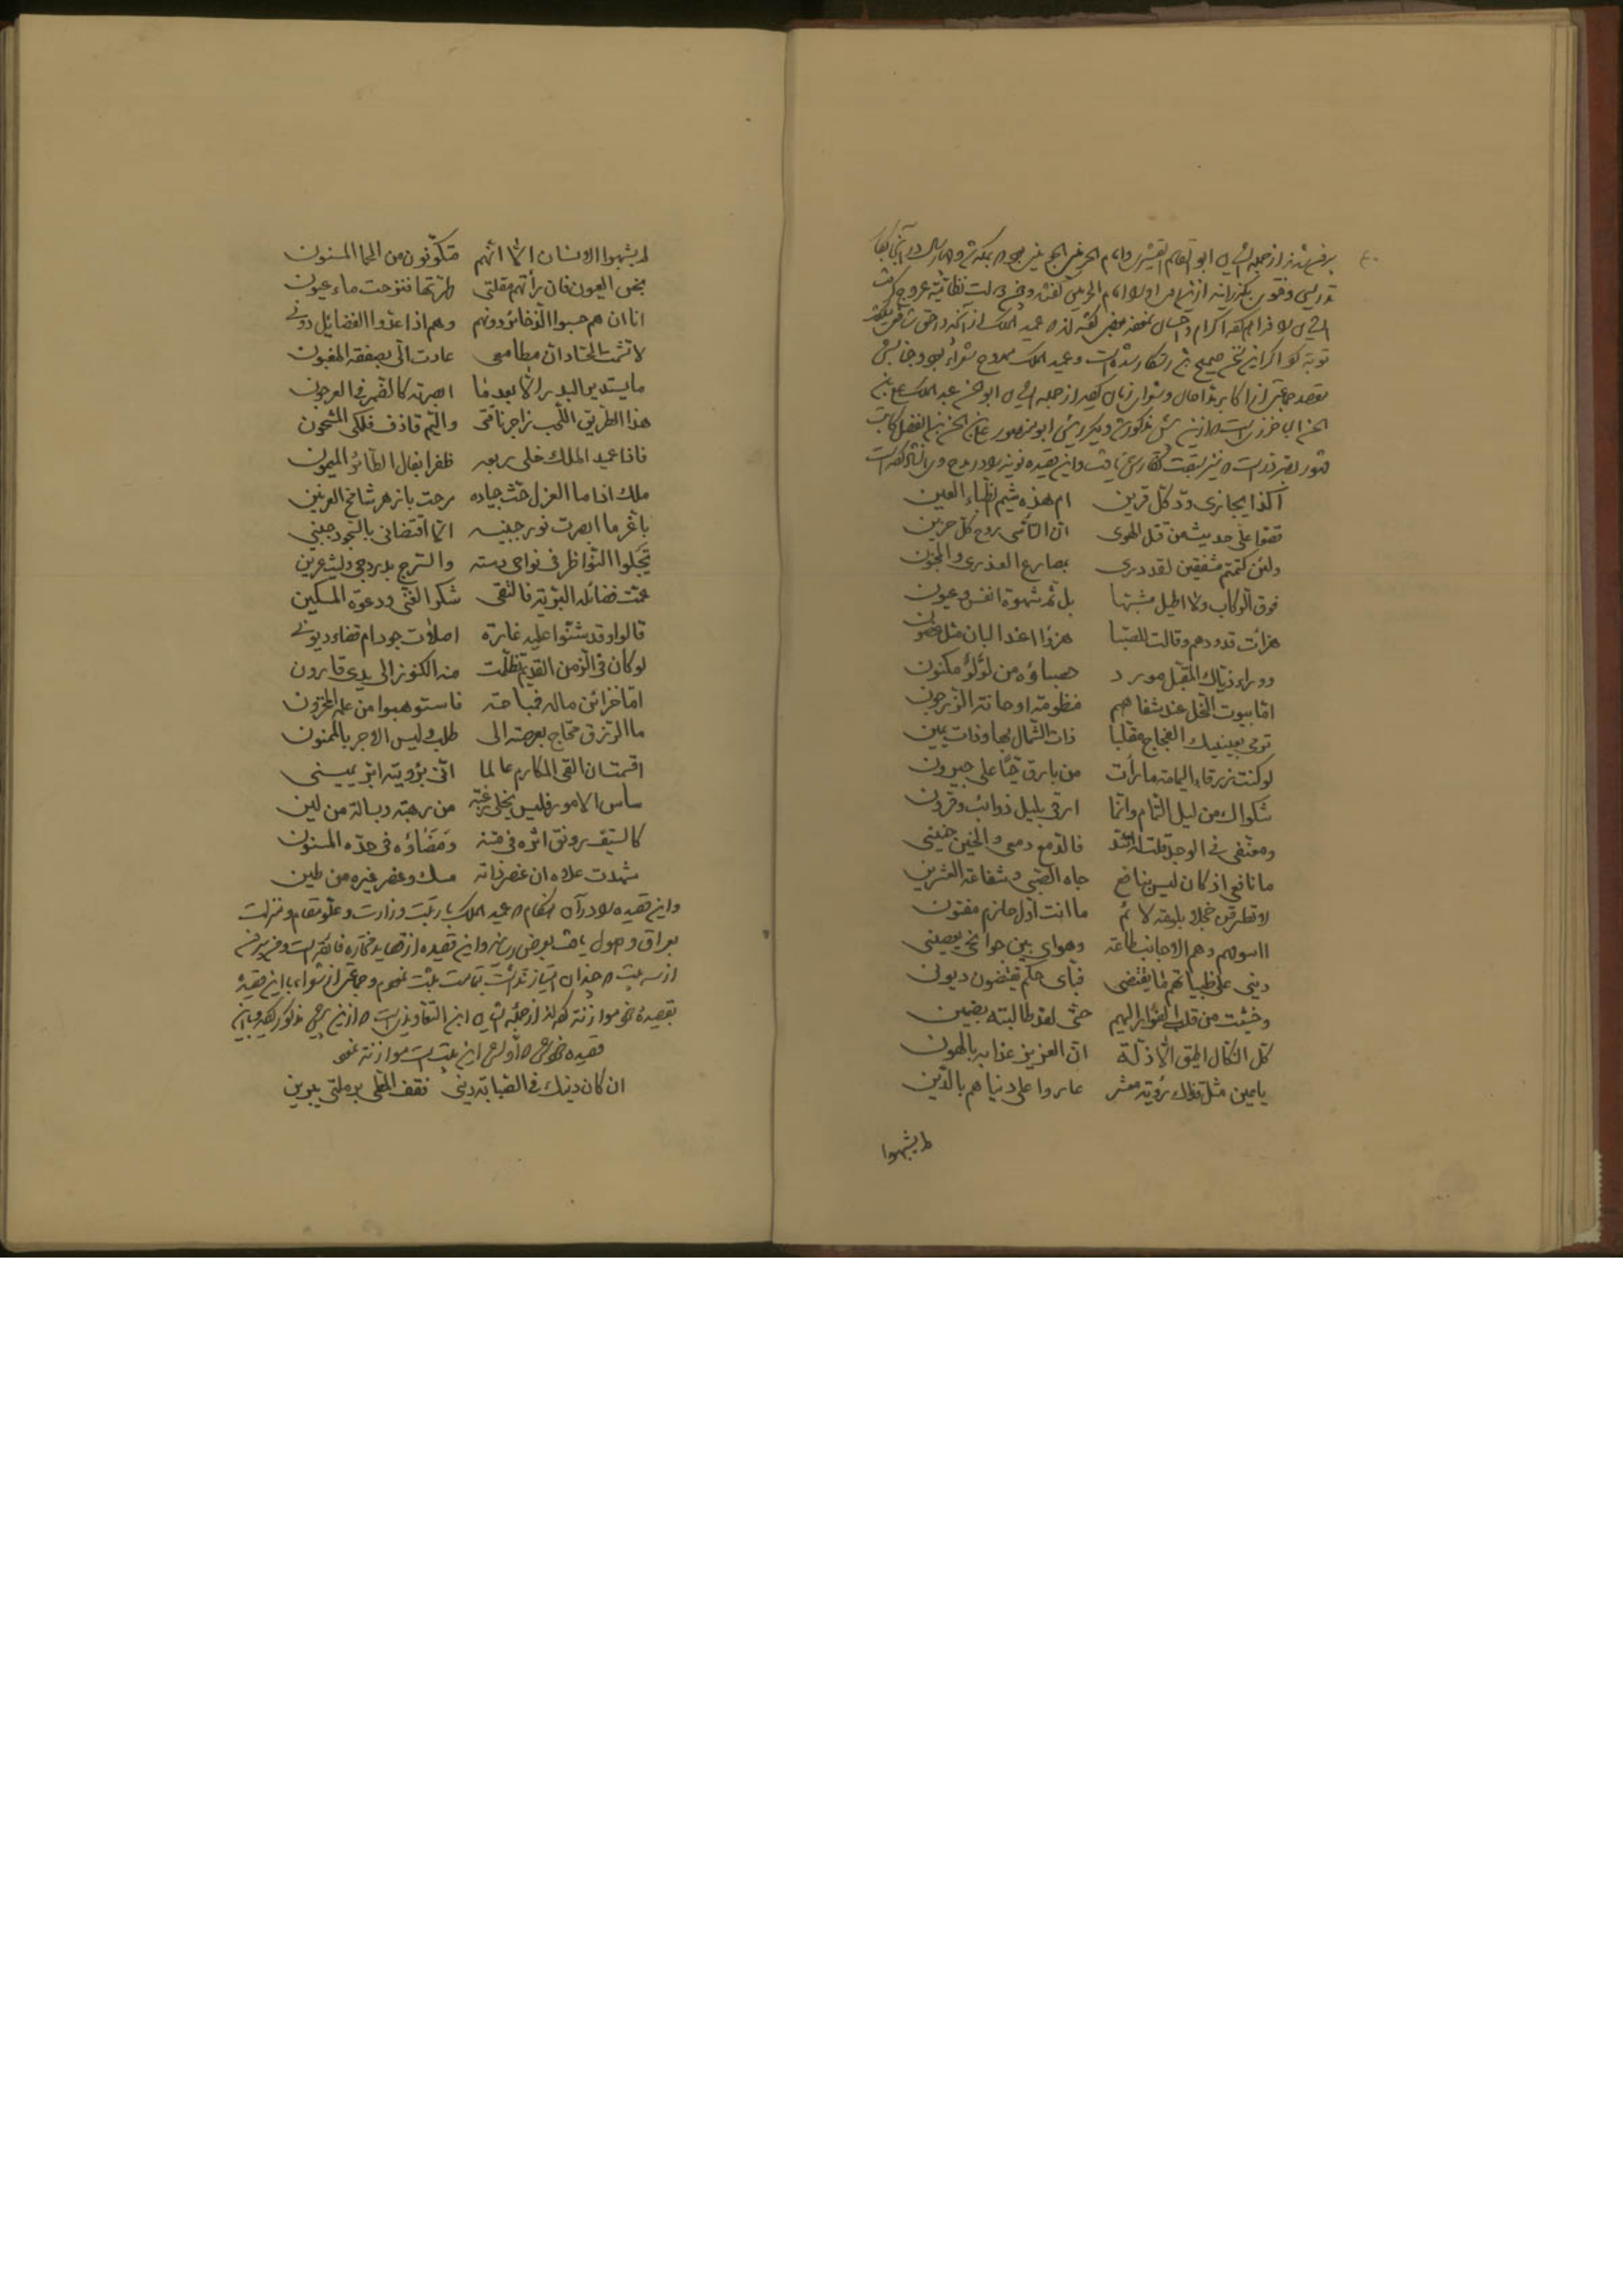 برفتند از جمله ایشان ابو القاسم القشیری و امام الحرمین الجوینی بود که بمکه شد و چهار سال در آنجا بکار
تدریس و فتوی بگذرانید از این او را امام الحرمین گفتند و چون دولت نظامیه عروج گرفت
ایشان را فراهم کرد اکرام و احسان نمود بعضی گفته‌اند که عمید الملک از آنچه در حق شافعی
توبه کرد اگر این سخن صحیح رستگار شده است و عمید الملک ممدوح شعراء بود و جنابش
مقصد جماعتی از اکابر افاضل و شعرای زمان از جمله ایشان ابو الحسن عبد الملک علی بن
الحسن الباخرزی است که ازین پیش مذکور شد و دیگر رئیس ابو منصور علی بن الحسن بن الفضل کاتب
مشهور بصردر است و این قصیده نونیه را در مدح وی انشاد کرده است
أكذا يجازى ودّ كلّ قرين ام هذه شيم الظباء العين
قصّوا علىّ حديث من قتل الهوى انّ التأسّى روح كلّ حزين
ولئن كتمتم مشفقين لقد درى بمصارع العذرى والمجنون
فوق الركاب ولا اطيل مشبّها بل ثمّ شهوة انفس وعيون
هزأت قدودهم وقالت للصبا هزوا اعند البان مثل غصون
ووراء ذيّاك المقبّل مورد حصباؤه من لؤلؤ مكنون
امّا بيوت النحل عند شفاههم منظومة او حانة الزرجون
ترمى بعينيك الفجاج مقلّبا ذات الشمال بها وذات يمين
لو كنت زرقاء اليمامة ما رأت من بارق حيّا على جيرون
شكواك من ليل التمام وانّما ارقى بليل ذوائب وقرون
ومعنّفى فى الوجد قلت له اتّئد فالدمع دمعى والحنين حنينى
ما نافعى اذ كان ليس بنافع جاه الصبى وشفاعة العشرين
لا تطرقن خجلا بلومة لائم ما انت اوّل حازم مفتون
أاسومهم وهم الاجانب طاعة وهواى بين جوانحى يعصينى
دينى على ظبياتهم ما يقتضى فبأى حكم يقتضون ديونى
وخشيت من قلبى الفرار اليهم حتّى لقد طالبته بضمين
كلّ النكال اطيق الّا ذلّة انّ العزيز عذابه بالهون
يا عين مثل قذاك رؤية معشر عار على دنياهم بالدين
لم يشبهوا
لم يشبهوا الانسان الّا انّهم متكوّنون من الحمأ المسنون
نجس العيون فان رأتهم مقلتى طهّرتها فنزحت ماء عيون
انا ان هم حسبوا الذخائر دونهم وهم اذا عدّوا الفضائل دونى
لا تشمت الحسّاد انّ مطامعى عادت الىّ بصفقة المغبون
ما يستدير البدر الّا بعد ما ابصرته كالضمر فى العرجون
هذا الطريق اللّحب زاجر ناقتى واليمّ قاذف فلكى المشحون
فاذا عميد الملك حلّى ربعه ظفرا بفال الطائر الميمون
ملك اذا ما العزم حثّ جياده مرحت بازهر شامخ العرنين
باغرّ ما ابصرت نور جبينه الّا اقتضانى بالسجود جبينى
تجلوا النواظر فى نواحى دسته والسرج بدر دجى وليث عرين
عمّت فضائله البريّة فالتقى شكر الغنى ودعوة المسكين
قالوا وقد شنّوا عليه غارة اصلات جود ام قضاء ديون
لو كان فى الزمن القديم تظلّمت منه الكنوز الى يدى قارون
امّا خزائن ماله فمباحة فاستوهبوا من علمه المخزون
ما الرزق محتاج بعرصته الى طلب وليس الاجر بالممنون
اقسمت ان القى المكارم عالما انّى برؤيته ابرّ يمينى
ساس الامور فليس يخلى رغبة من رهبة وبسالة من لين
كالسيف رونق اثره فى متنه ومضاؤه فى حدّه المسنون
شهدت علاه انّ عنصر ذاته مسك وعنصر غيره من طين
و این قصیده را در آن هنگام که عمید الملک برتبت وزارت و علو مقام و منزلت
بعراق وصول یافت بعرض رسانید و این قصیده از قصاید مختاره فائقه است و چون
از سه بیت که چندان امتیاز نداشت بتمامت ثبت نمودم و جماعتی از شعراء با این قصیده
بقصیده موازنه کرده‌اند از جمله ایشان ابن التعاویذی است که ازین پیش مذکور گردید و باین
قصیده خودش که اولش این بیت است موازنه نمود
ان كان دينك فى الصبابة دينى فقف المطى برملتى يبرين